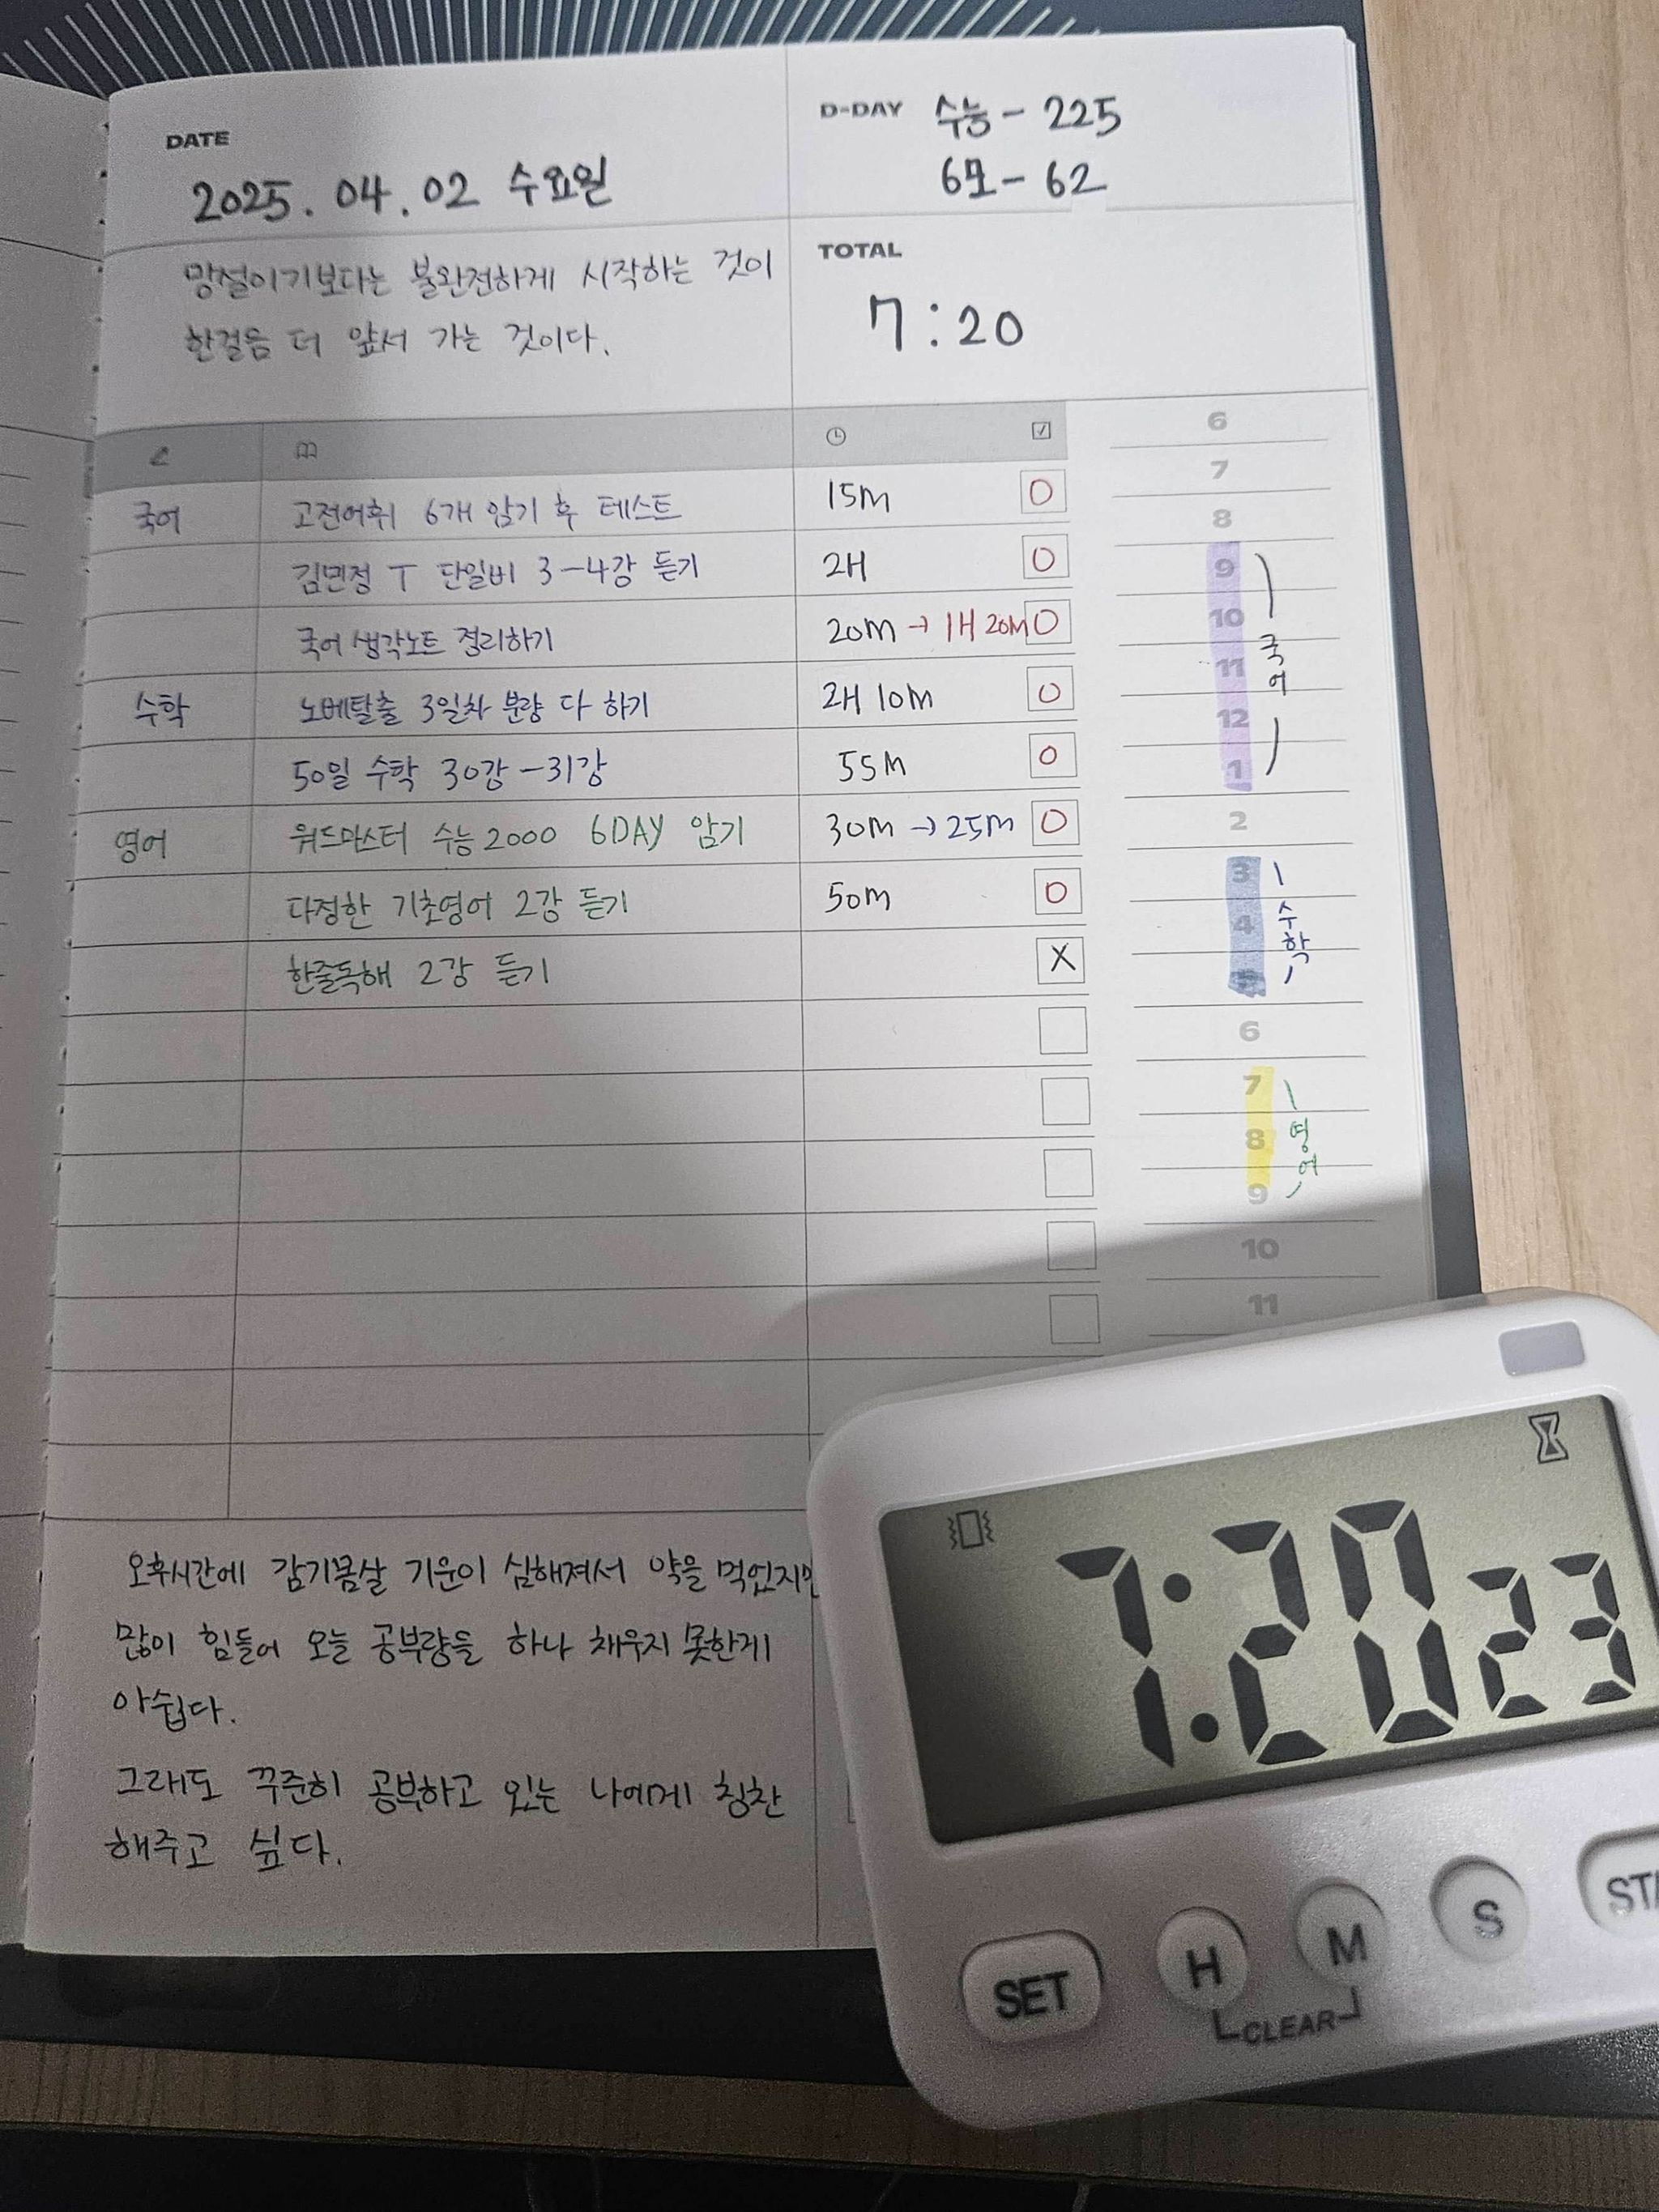 DATE
2025. 04. 02 수요일
D-DAY 수능 - 225
6모 - 62
망설이기보다는 불완전하게 시작하는 것이
한걸음 더 앞서 가는 것이다.
TOTAL
7:20
국어 고전어휘 6개 암기 후 테스트 15M O
김민정 T 단일비 3-4강 듣기 2H O
국어 생각노트 정리하기 20M → 1H 20M O
수학 노베탈출 3일차 분량 다 하기 2H 10M O
50일 수학 30강 - 31강 55M O
영어 워드마스터 수능 2000 6DAY 암기 30M → 25M O
다정한 기초영어 2강 듣기 50M O
한줄독해 2강 듣기 X
6
7
8
9
10
11
12
1
국어
2
3
4
5
수학
6
7
8
9
영어
10
11
오후시간에 감기몸살 기운이 심해져서 약을 먹었지만
많이 힘들어 오늘 공부량을 하나 채우지 못한게
아쉽다.
그래도 꾸준히 공부하고 있는 나에게 칭찬
해주고 싶다.
7:20 23
SET H M S STA
CLEAR